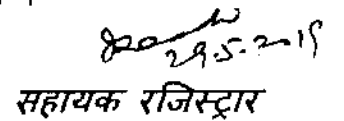 29.5.2019
सहायक रजिस्ट्रार